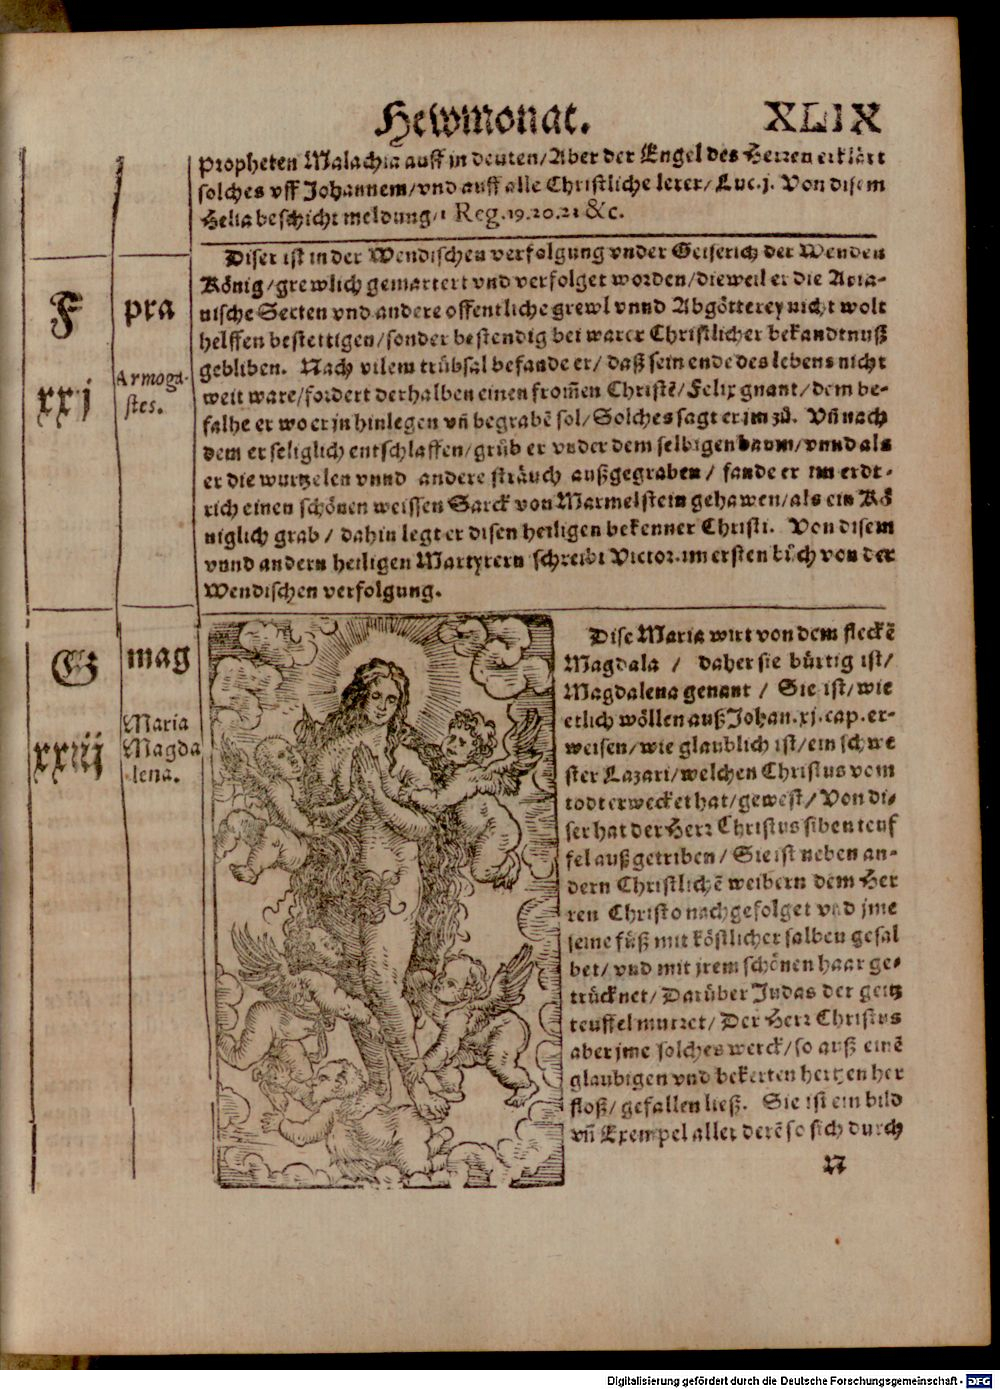 Hewmonat. XLIX
Propheten Malachia auff in deuten/Aber der Engel des Herren erklärt
solches vff Johannem/vnd auff alle Christliche lerer/Luc.j. Von disem
Helia beschicht meldung/1 Reg.19.20.21 &c.
F
xxj
pra
Armoga-
stes.
Diser ist in der Wendischen verfolgung vnder Geiserich der Wenden
König/grewlich gemartert vnd verfolget worden/dieweil er die Aria-
nische Secten vnd andere offentliche grewl vnnd Abgötterey nicht wolt
helffen bestettigen/sonder bestendig bei warer Christlicher bekandtnuß
gebliben. Nach vilem trübsal befande er/ daß sein ende des lebens nicht
weit ware/fordert derhalben einen from̃en Christẽ/Felix gnant/dem be-
falhe er wo er jn hinlegen vñ begrabẽ sol/Solches sagt er jm zů. Vñ nach
dem er seliglich entschlaffen/grůb er vnder dem selbigen baum/vnnd als
er die wurtzelen vnnd andere sträuch außgegraben/ fande er im erdt-
rich einen schönen weissen Sarck von Marmelstein gehawen/als ein Kö
niglich grab/ dahin legt er disen heiligen bekenner Christi. Von disem
vnnd andern heiligen Martyrern schreibt Victor im ersten bůch von der
Wendischen verfolgung.
G
xxij
mag
Maria
Magda
lena.
Dise Maria wirt von dem fleckẽ
Magdala / daher sie bürtig ist/
Magdalena genant / Sie ist/wie
etlich wöllen auß Johan.xj.cap.er-
weisen/wie glaublich ist/ein schwe
ster Lazari/welchen Christus vom
todt erwecket hat/gewest/Von di-
ser hat der Herr Christus siben teuf
fel außgetriben/ Sie ist neben an-
dern Christlichẽ weibern dem Her
ren Christo nachgefolget vnd jme
seine füß mit köstlicher salben gesal
bet/ vnd mit jrem schönen haar ge-
trücknet/Darüber Judas der geitz
teuffel murret/Der Herr Christus
aber jme solches werck/so auß einẽ
glaubigen vnd bekerten hertzen her
floß/gefallen ließ. Sie ist ein bild
vñ Exempel aller derẽ so sich durch
N
Digitalisierung gefördert durch die Deutsche Forschungsgemeinschaft - DFG